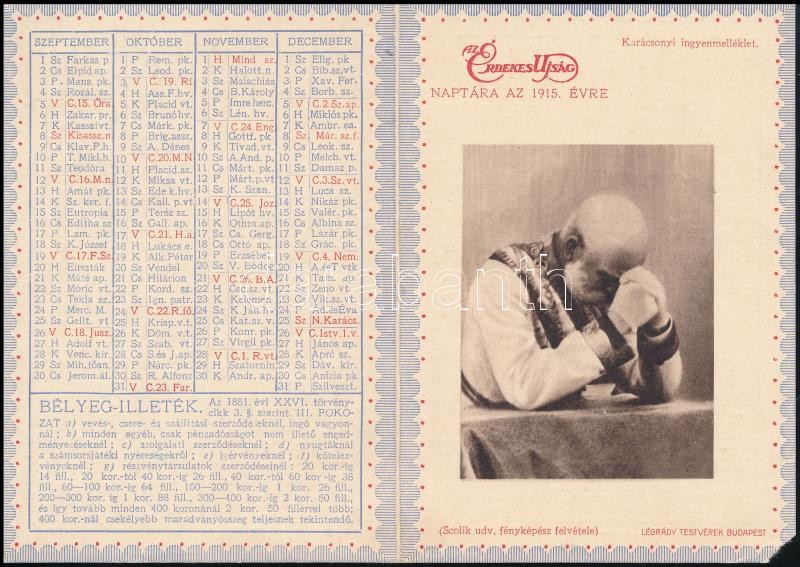 SZEPTEMBER
1 Sz Farkas p.
2 Cs Elpid ap.
3 P Mans. pk.
4 Sz Rozál. sz.
5 V C.15. Őra.
6 H Zakar. pr.
7 K Kassai vt.
8 Sz Kisassz.n.
9 Cs Klav. P. h.
10 P T. Mikl. h.
11 Sz Teodóra
12 V C.16.M.n.
13 H Amát pk.
14 K Sz. ker. f.
15 Sz Eutropia
16 Cs Editha sz
17 P Lam. pk.
18 Sz K. József
19 V C.17.F.Sz.
20 H Euszták
21 K Máté ap.
22 Sz Móric vt.
23 Cs Tekla sz.
24 P Merc. M.
25 Sz Gellt. vt
26 V C.18. Jusz.
27 H Adolf vt.
28 K Venc. kir.
29 Sz Mih. főan.
30 Cs Jerom. ál.
OKTÓBER
1 P Rem. pk.
2 Sz Leod. pk.
3 V C. 19. Rf.
4 H Ass. F. hv.
5 K Placid vt.
6 Sz Brunó hv.
7 Cs Márk. pk.
8 P Brig. assz.
9 Sz A. Dénes
10 V C.20.M.N
11 H Placid. sz.
12 K Miksa vt.
13 Sz Ede k. hv.
14 Cs Kall. p. vt
15 P Teréz sz.
16 Sz Gall. ap.
17 V C.21. H.a.
18 H Lukács e.
19 K Alk. Péter
20 Sz Vendel
21 Cs Hilárion
22 P Kord. sz.
23 Sz Ign. patr.
24 V C.22.R.fő.
25 H Krisp. v. t.
26 K Döm. vt.
27 Sz Szab. vt.
28 Cs S. és J. ap.
29 P Nárc. pk.
30 Sz R. Alfonz
31 V C.23. Far.
NOVEMBER
1 H Mind sz.
2 K Halott. n.
3 Sz Malachiás
4 Cs B. Károly
5 P Imre herc.
6 Sz Lén. hv.
7 V C.24.Eng.
8 H Gottf. pk.
9 K Tivad. vt.
10 Sz A. And. p.
11 Cs Márt. pk.
12 P Márt. p. vt
13 Sz K. Szan.
14 V C.25. Joz.
15 H Lipót hv.
16 K Othm. ap.
17 Sz Cs. Gerg.
18 Cs Ottó ap.
19 P Erzsébet
20 Sz V. Bódog
21 V C.26.B.A.
22 H Cec. sz. vt
23 K Kelemen
24 Sz K. Ján. h.
25 Cs Kat. sz. v.
26 P Konr. pk.
27 Sz Virgil pk.
28 V C.1. R.vt.
29 H Szaturnin
30 K Andr. ap.
DECEMBER
1 Sz Elig. pk
2 Cs Bib. sz. vt.
3 P Xav. Fer.
4 Sz Borb. sz.
5 V C.2.Sz.ap.
6 H Miklós pk.
7 K Ambr. ea.
8 Sz Már. sz.f.
9 Cs Leok. sz.
10 P Melch. vt.
11 Sz Damaz p.
12 V C.3.Sz.vt.
13 H Luca sz.
14 K Nikáz pk.
15 Sz Valér. pk.
16 Cs Albina sz.
17 P Lázár pk.
18 Sz Grác. pk.
19 V C.4. Nem.
20 H
21 K Tam. ap.
22 Sz Zeno vt.
23 Cs Vik. sz. vt.
24 P Ád. és Éva
25 Sz N.Karács.
26 V C.Istv.1.v.
27 H János ap.
28 K Apró sz.
29 Sz Dáv. kir.
30 Cs Anizia pk
31 P Szilveszt.
BÉLYEG-ILLETÉK. Az 1881. évi XXVI. törvény-
cikk 3. §. szerint. III. FOKO-
ZAT a) vevés-, csere- és szállítási szerződéseknél, ingó vagyon-
nál; b) minden egyéb, csak pénzadósságot nem illető enged-
ményezéseknél; c) szolgálati szerződéseknél; d) nyugtáknál
a számsorjátéki nyereségekről; e) igérvényeknél; f) kötelez-
vényeknél; g) részvénytársulatok szerződéseinél: 20 kor.-ig
14 fill., 20 kor.-tól 40 kor.-ig 26 fill., 40 kor.-tól 60 kor.-ig 38
fill., 60—100 kor.-ig 64 fill., 100—200 kor.-ig 1 kor. 26 fill.,
200—300 kor. ig 1 kor. 88 fill., 300—400 kor.-ig 2 kor. 50 fill.,
és így tovább minden 400 koronánál 2 kor. 50 fillérrel több;
400 kor.-nál csekélyebb maradványösszeg teljesnek tekintendő.
Karácsonyi ingyenmelléklet.
AZ ÉRDEKES UJSÁG
NAPTÁRA AZ 1915. ÉVRE
(Scolik udv. fényképész felvétele)
LÉGRÁDY TESTVÉREK BUDAPEST